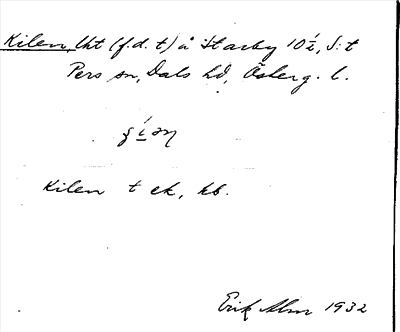 Kilen, lht (f.d. t) å Starby 10 1/2, S:t
Pers sn, Dals hd, Österg. l.
Kilen t ek, kb.
Erik Alm 1932